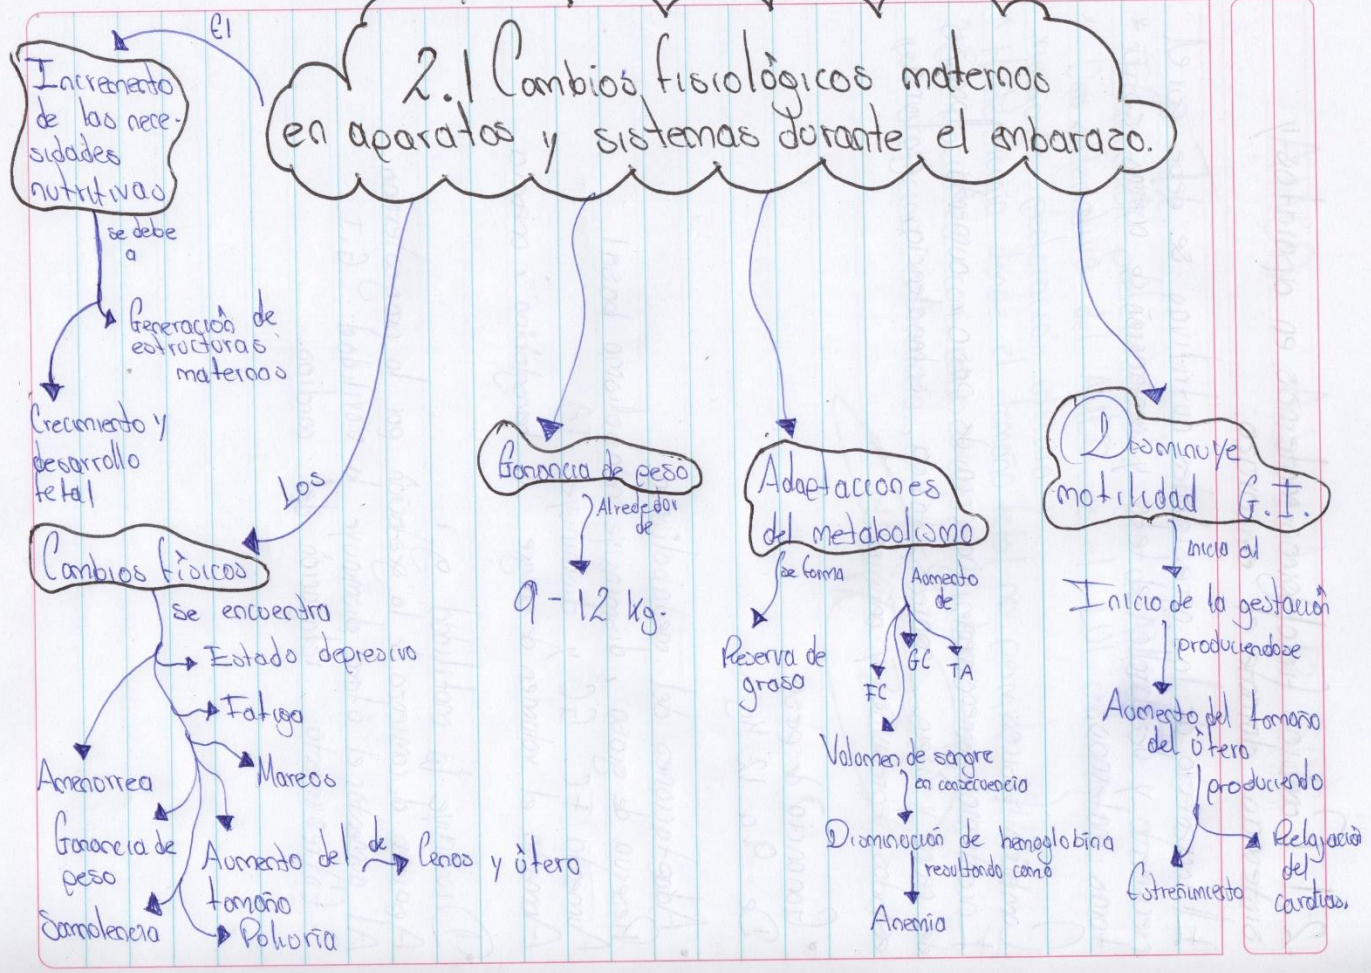 2.1 Cambios fisiológicos maternos
en aparatos y sistemas durante el embarazo.
El
Incremento
de las nece-
sidades
nutritivas
se debe
a
Generación de
estructuras
maternas
Crecimiento y
desarrollo
fetal
Los
Cambios físicos
se encuentra
Estado depresivo
Fatiga
Mareos
Amenorrea
Ganancia de
peso
Aumento del
tamaño
de
Cenos y útero
Somolencia
Poliuria
Ganancia de peso
Alrededor
de
9-12 kg.
Adaptacciones
del metabolismo
se forma
Reserva de
grasa
Aumento
de
FC
GC
TA
Volumen de sangre
en consecuencia
Disminución de hemoglobina
resultando como
Anemia
Disminuye
motilidad G.I.
inicia al
Inicio de la gestación
produciendose
Aumento del tamaño
del útero
produciendo
Estreñimiento
Relajación
del
cardias.